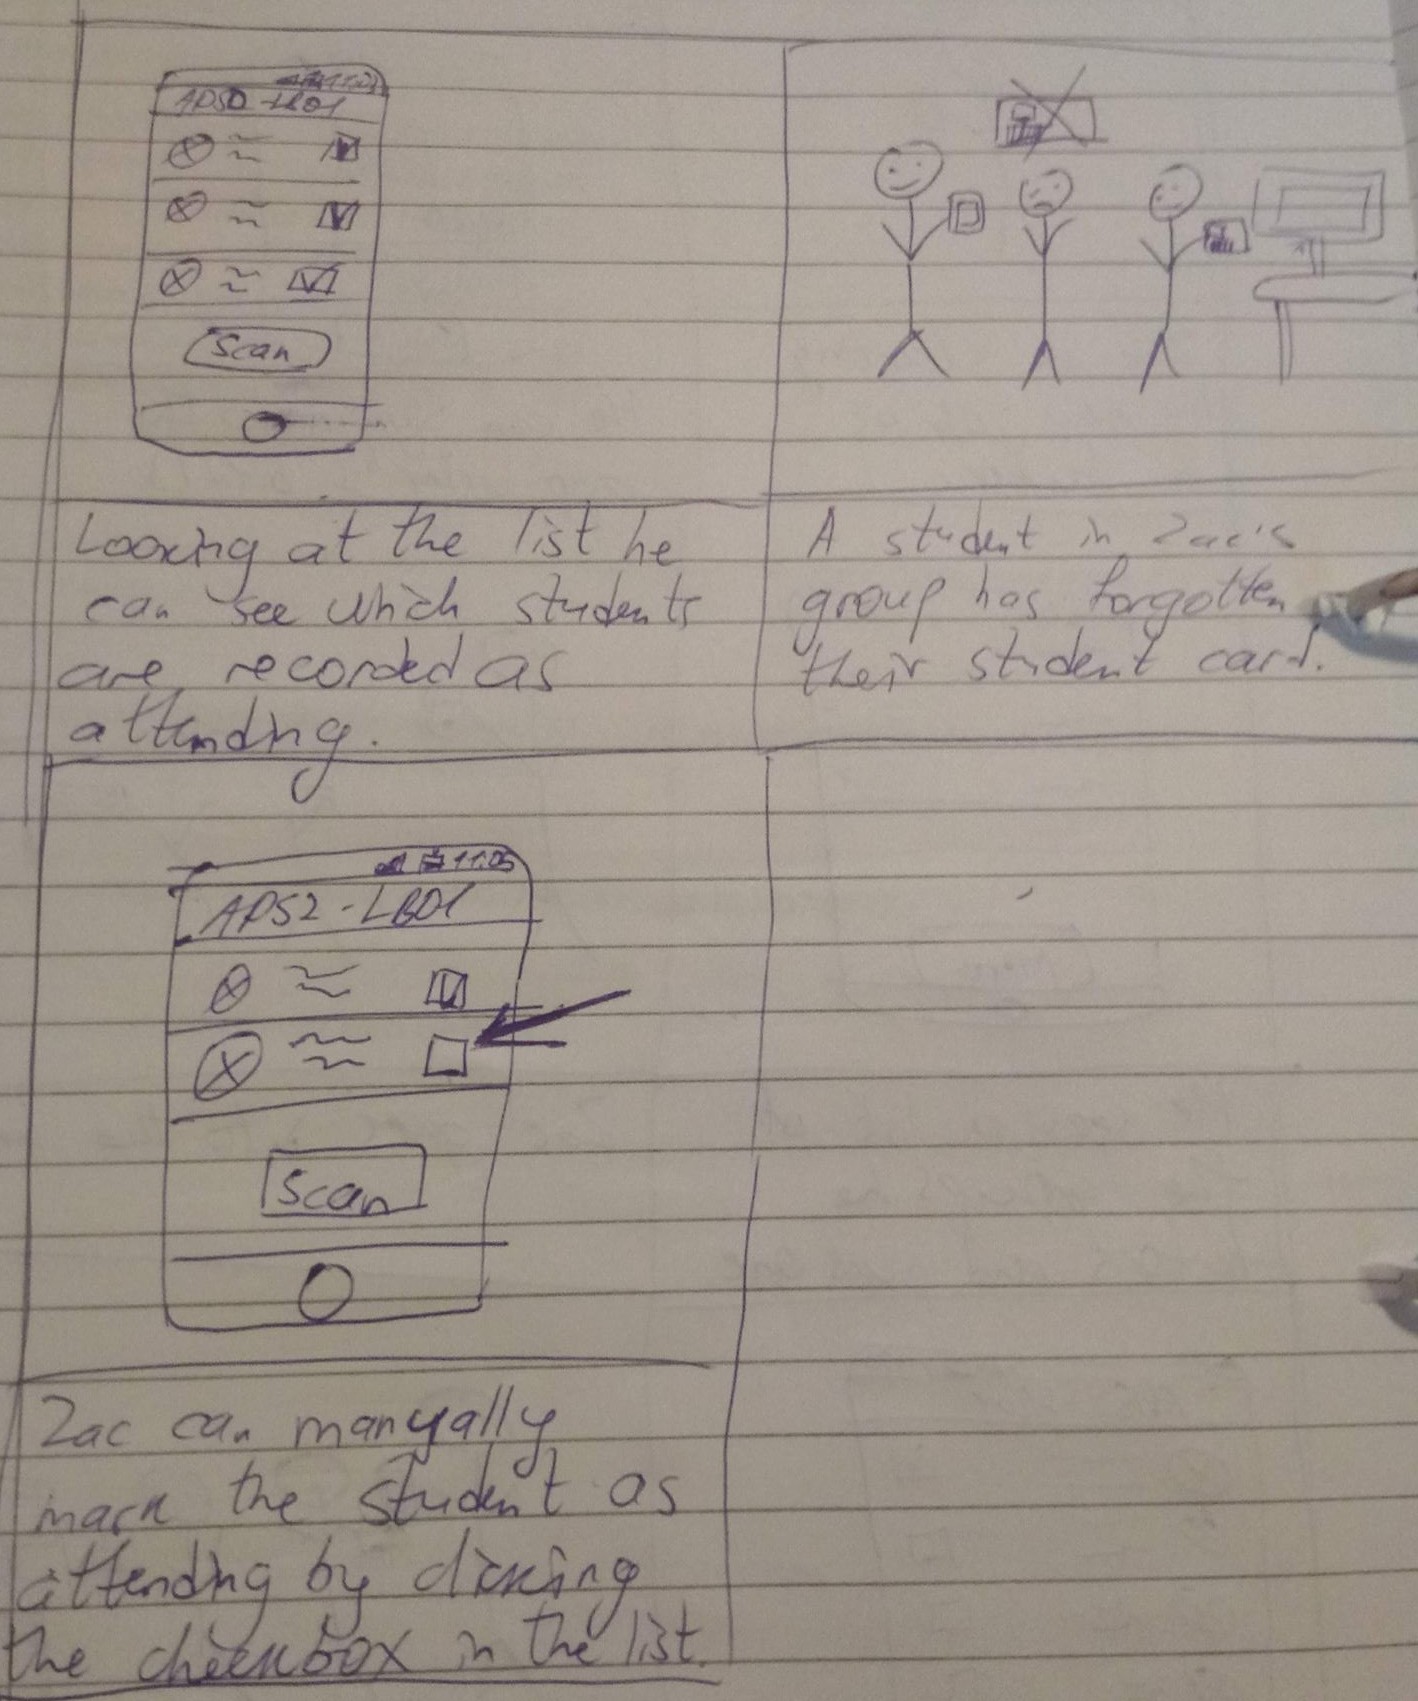 LB01
Scan
Looking at the list he
can see which students
are recorded as
attending.
A student in Zac's
group has forgotten
their student card.
11:05
APS2-LB01
Scan
Zac can manyally
mark the student as
attending by clicking
the checkbox in the list.